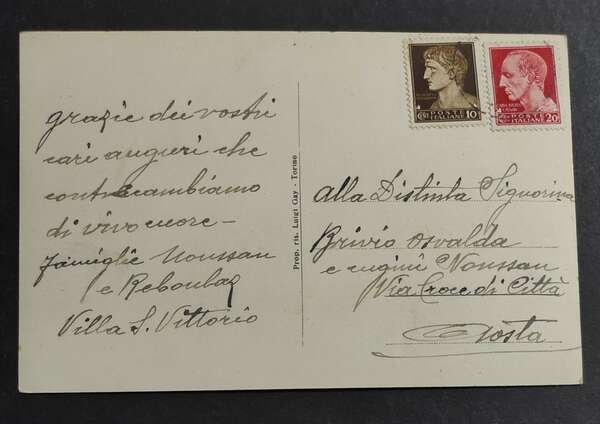 grazie dei vostri
cari auguri che
contracambiamo
di vivo cuore -
famiglie Noussan
e Reboulaz
Villa S. Vittorio
Prop. ris. Luigi Gay - Torino
POSTE ITALIANE
10
POSTE ITALIANE
20
alla Distinta Signorina
Brivio Osvalda
e cugini Noussan
Via Croce di Città
Aosta